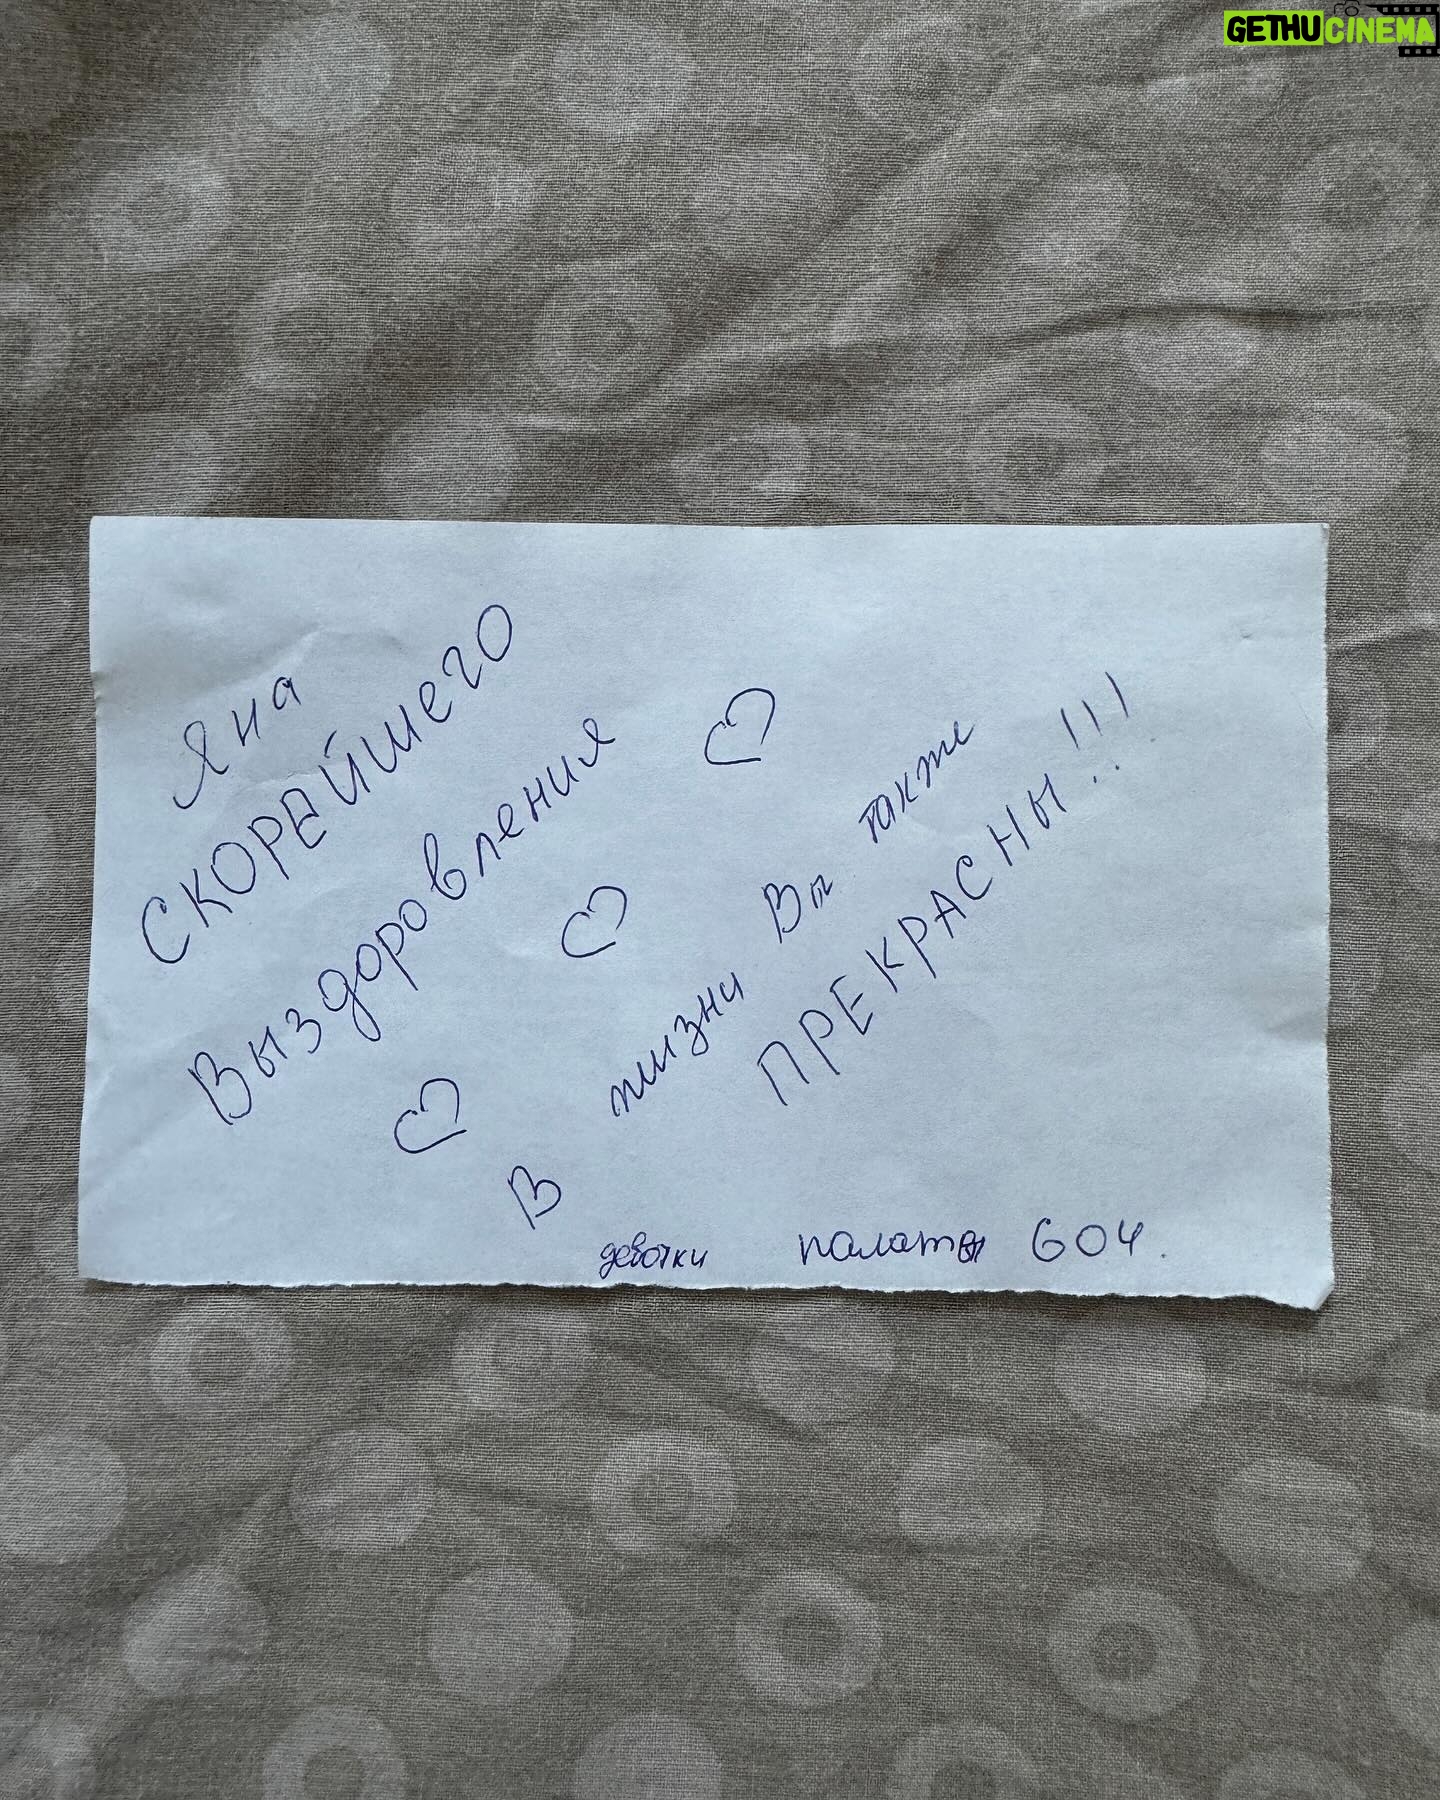 GETHUCINEMA
Яна
СКОРЕЙШЕГО
Выздоровления
В жизни Вы также
ПРЕКРАСНЫ!!!
девочки палаты 604.